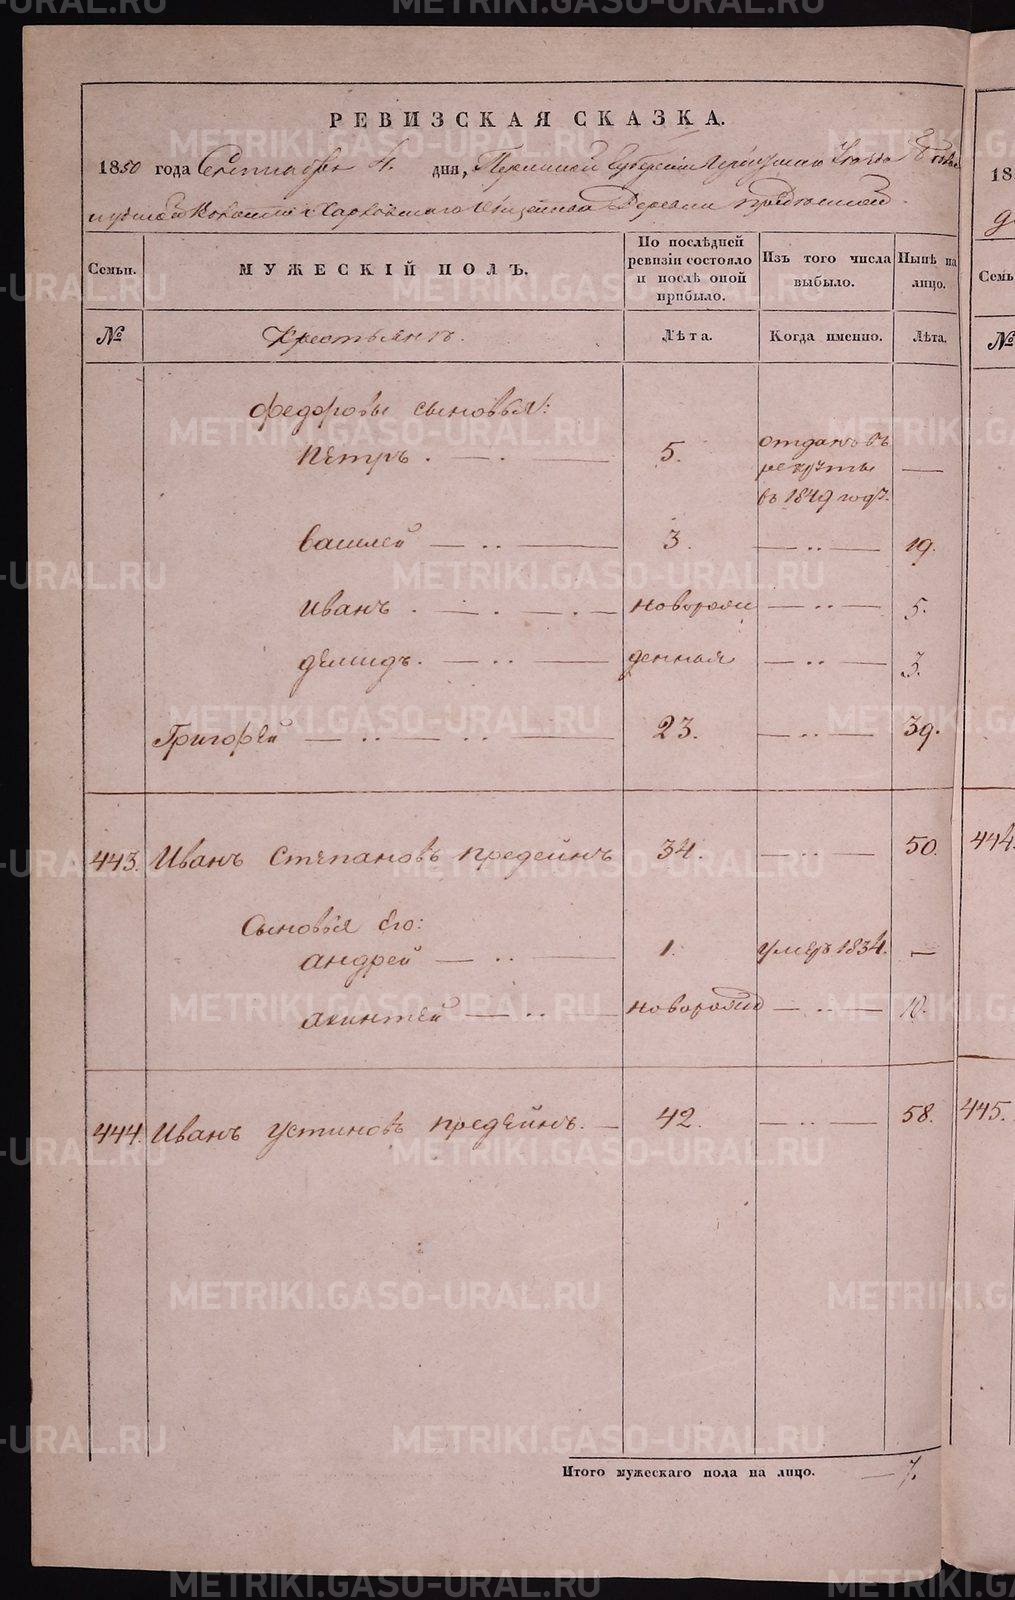 РЕВИЗСКАЯ СКАЗКА.
1850 года Сентября 4. дня, Пермской Губернии Ирбитскаго Уезда
Харловскаго Деревни
Семьи. МУЖЕСКІЙ ПОЛЪ. По послѣдней ревизіи состояло и послѣ оной прибыло. Изъ того числа выбыло. Нынѣ на лицо.
№ Крестьянъ. Лѣта. Когда именно. Лѣта.
Федоровы сыновья:
Петръ . — . — 5. отданъ въ рекруты въ 1849 году. —
Василей — .. — 3. — .. — 19.
Иванъ . — . — . — новорож — .. — 5.
Демидъ. — .. — денныя — .. — 3.
Григорей — .. — .. — 23. — .. — 39.
443. Иванъ Степановъ Предеинъ 34. — .. — 50.
Сыновья Его:
Андрей — .. — 1. умеръ 1834. —
Акинтей — .. — новорожд — .. — 10.
444. Иванъ Устиновъ Предеинъ. — 42. — .. — 58.
Итого мужескаго пола на лицо. — 7.
18
Семь
№
444.
445.
METRIKI.GASO-URAL.RU